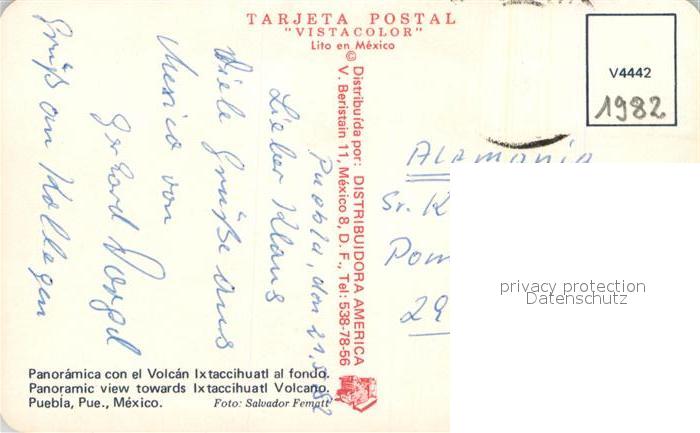 TARJETA POSTAL
"VISTACOLOR"
Lito en México
©
Distribuída por: DISTRIBUIDORA AMERICA
V. Beristain 11, México 8, D. F., Tel: 538-78-56
V4442
1982
Puebla, den 21.
Lieber Klaus
Viele Grüße aus
Mexico von
Gerhard
Gruß an Kollegen
Alemania
Sr. K
Pom
29
privacy protection
Datenschutz
Panorámica con el Volcán Ixtaccihuatl al fondo.
Panoramic view towards Ixtaccihuatl Volcano.
Puebla, Pue., México.
Foto: Salvador Fematt